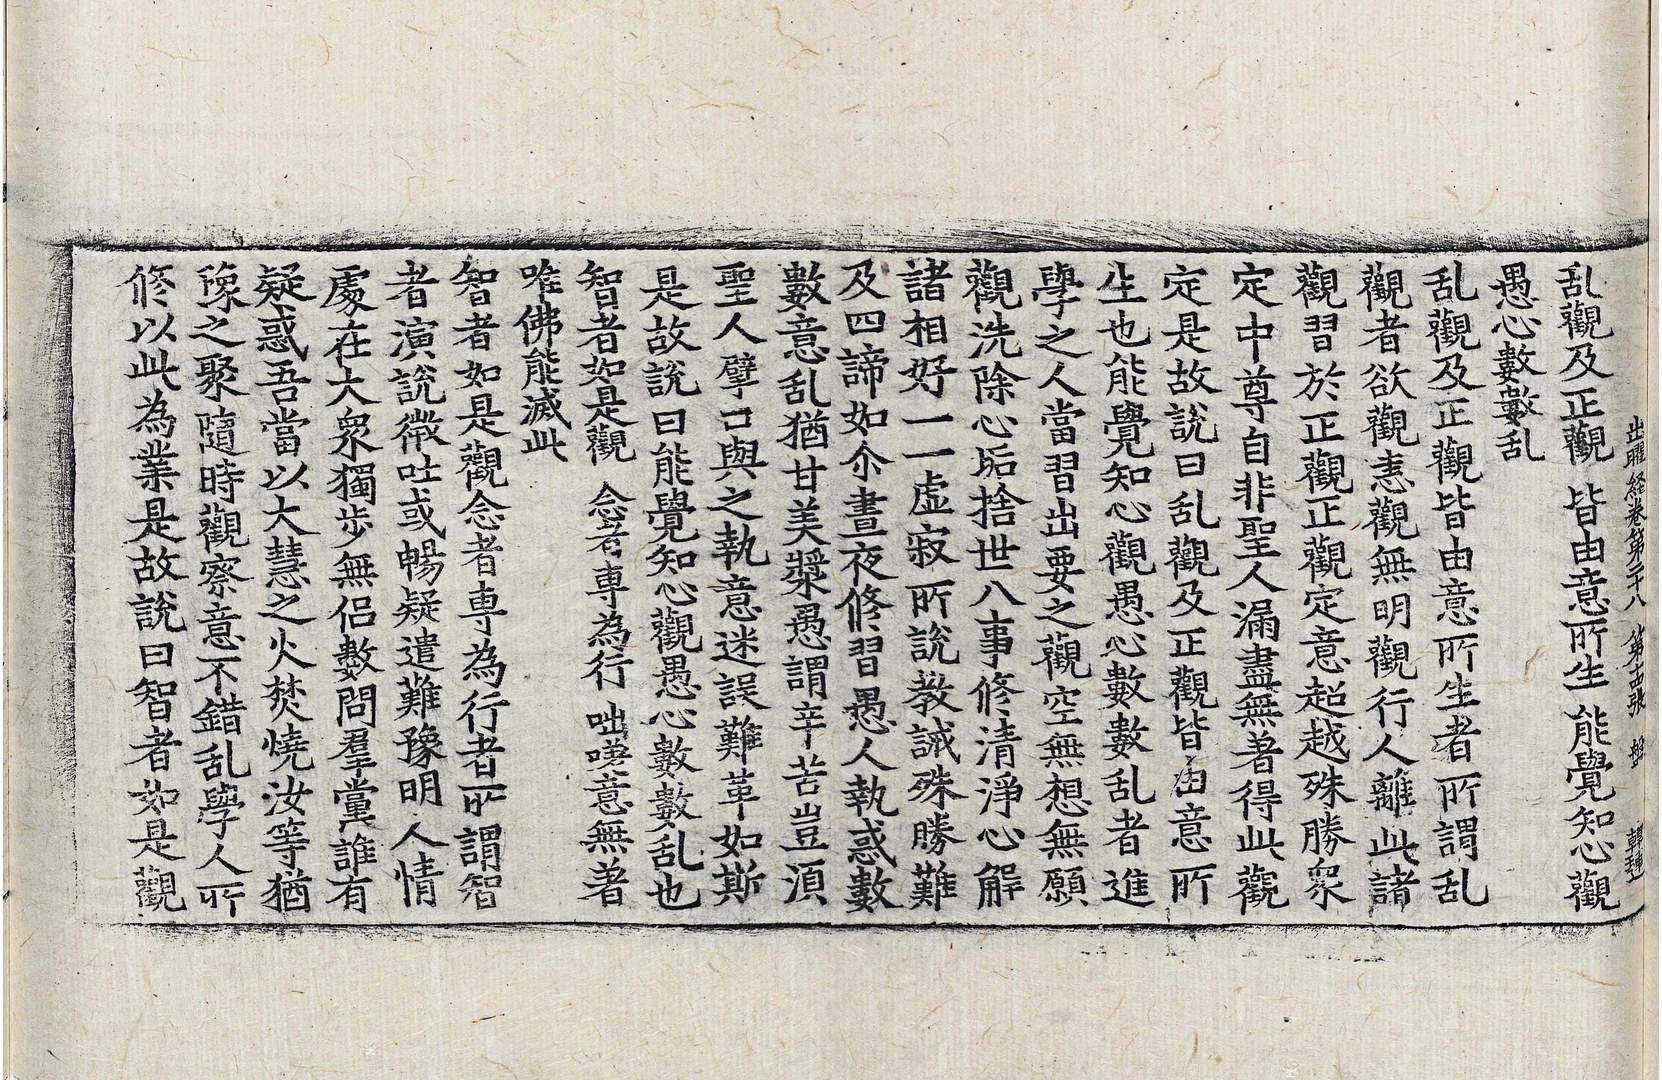 出曜経卷第二十八 第十五张 盤
乱觀及正觀 皆由意所生 能覺知心觀
愚心數數乱
乱觀及正觀皆由意所生者所謂乱
觀者欲觀恚觀無明觀行人離此諸
觀習於正觀正觀定意超越殊勝衆
定中尊自非聖人漏盡無著得此觀
定是故說曰乱觀及正觀皆由意所
生也能覺知心觀愚心數數乱者進
學之人當習出要之觀空無想無願
觀洗除心垢捨世八事修清淨心解
諸相好一一虛寂所說教誡殊勝難
及四諦如尒晝夜修習愚人執惑數
數意乱猶甘美漿愚謂辛苦豈湏
聖人擘口與之執意迷誤難革如斯
是故說曰能覺知心觀愚心數數乱也
智者如是觀 念者専為行 咄嗟意無著
唯佛能滅此
智者如是觀念者専為行者所謂智
者演說微吐或暢疑遣難豫明人情
處在大衆獨步無侣數問羣黨誰有
疑惑吾當以大慧之火焚燒汝等猶
豫之聚隨時觀察意不錯乱學人所
修以此為業是故說曰智者如是觀